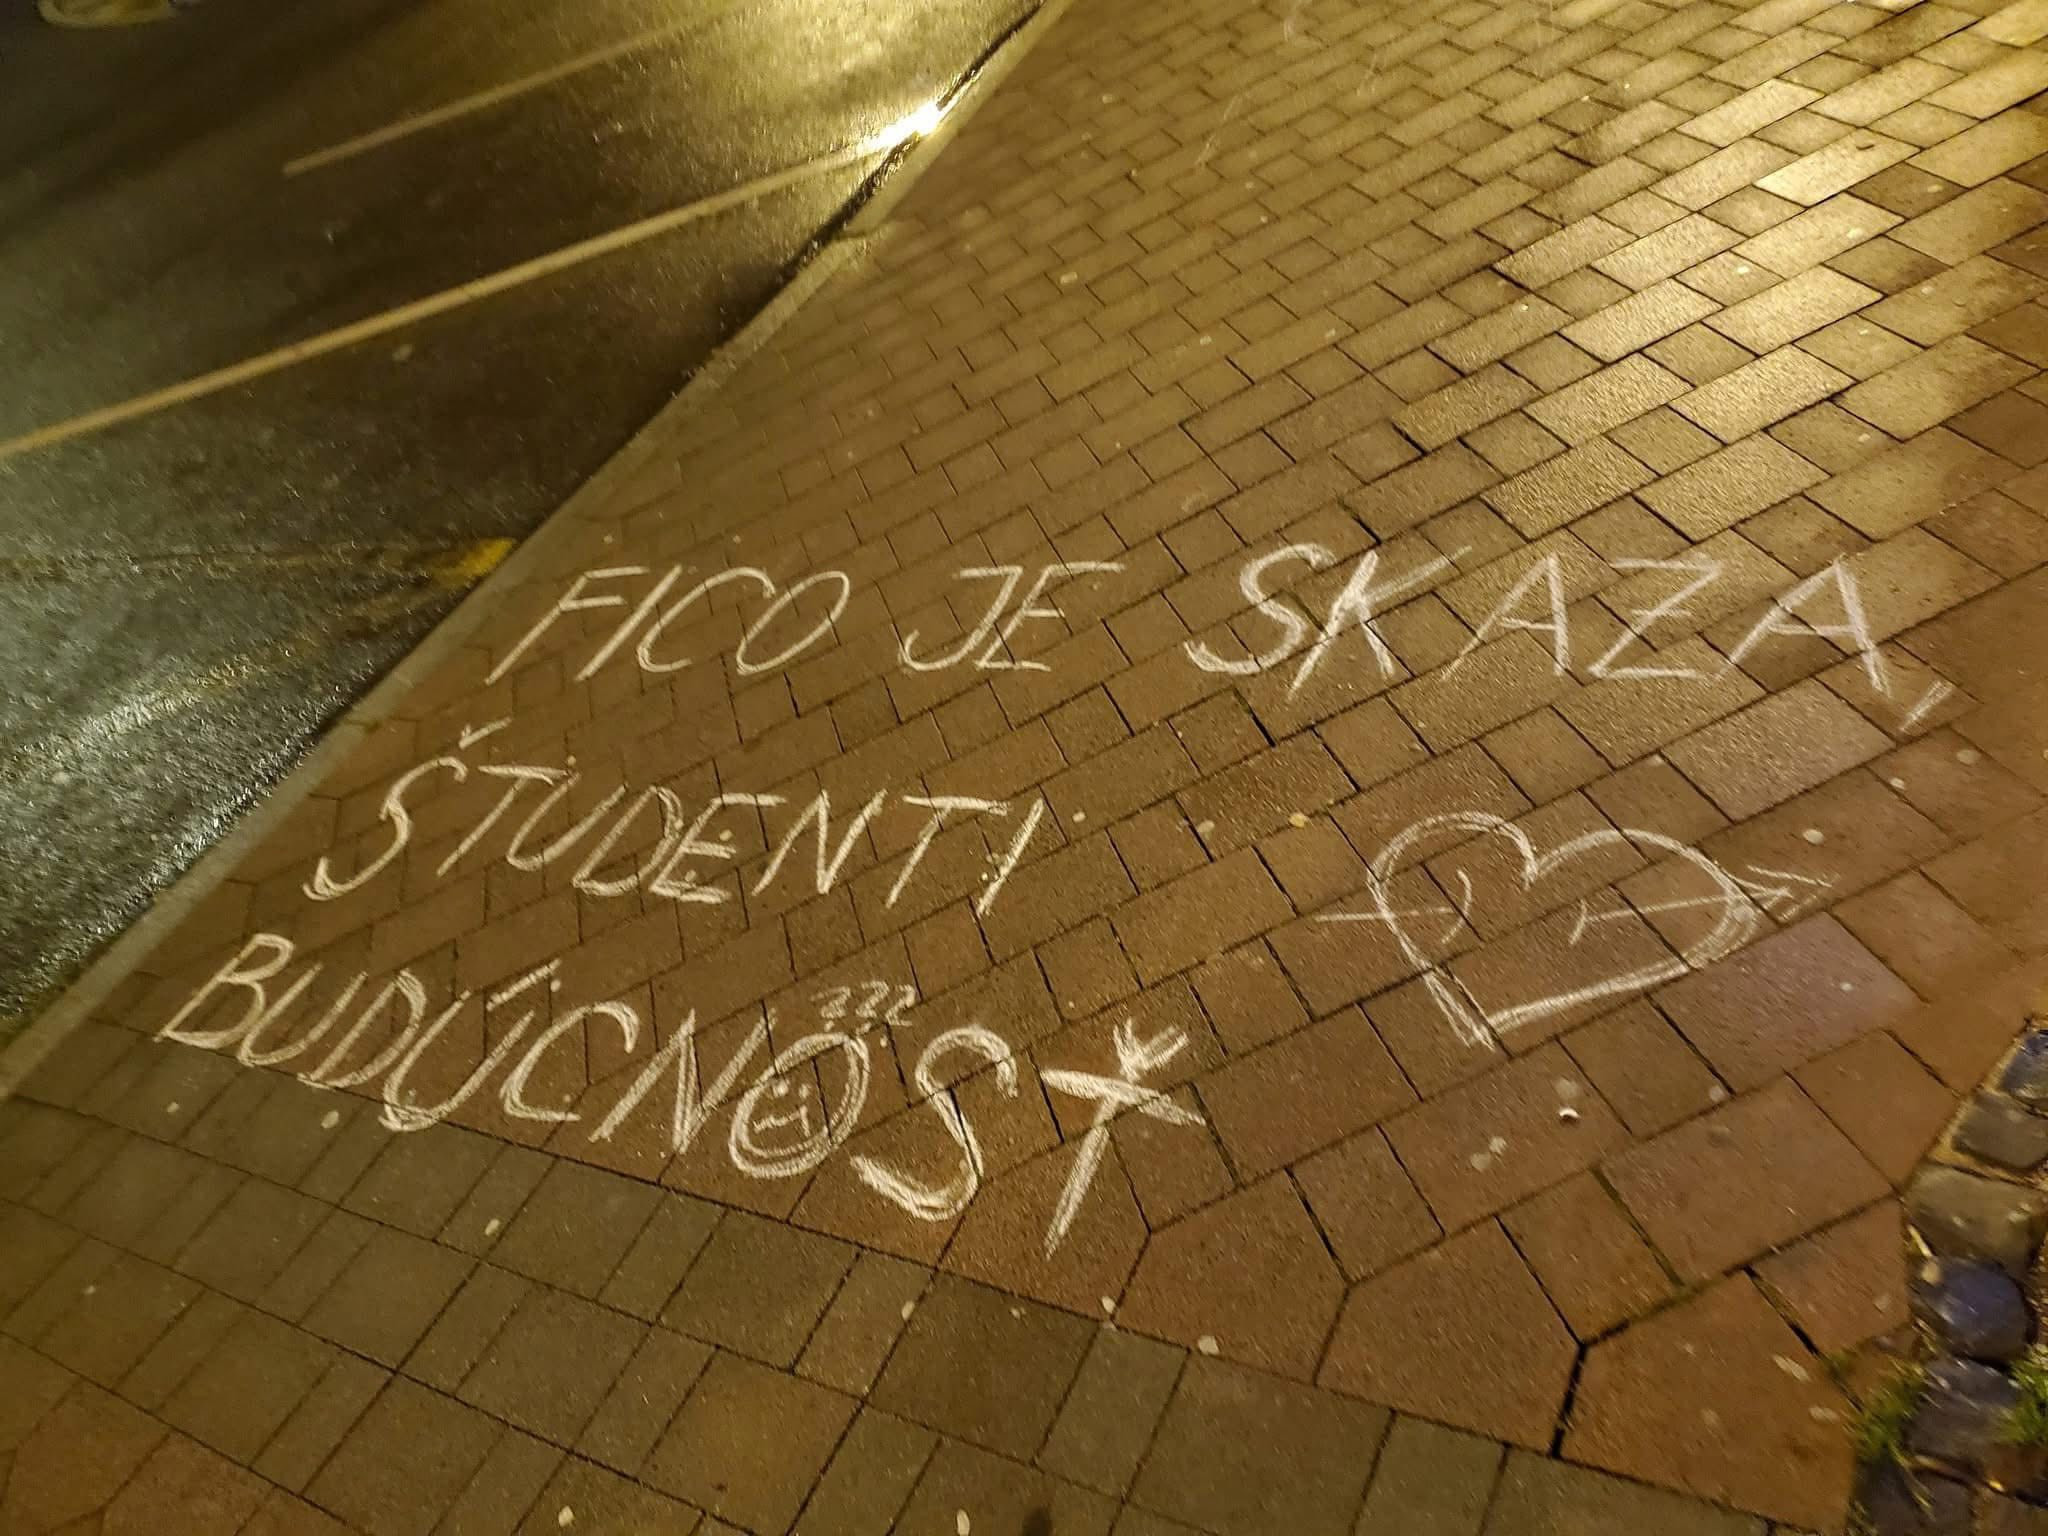 FICO JE SKAZA,
ŠTUDENTI
BUDÚCNOSŤ